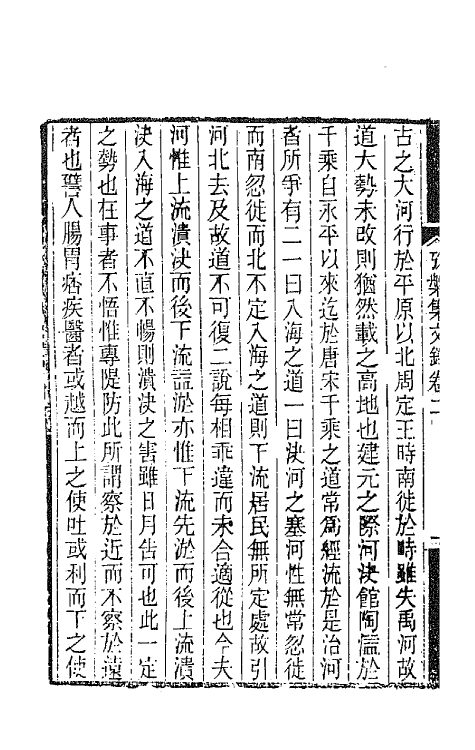 古之大河行於平原以北周定王時南徙於時雖失禹河故
道大勢未改則猶然載之高地也建元之際河決館陶儘於
千乘自永平以來迄於唐宋千乘之道常為經流於是治河
者所爭有二一曰入海之道一曰決河之塞河性無常忽徙
而南忽徙而北不定入海之道則下流居民無所定處故引
河北去及故道不可復二說每相乖違而未合適從也今夫
河惟上流潰決而後下流誌淤亦惟下流先淤而後上流潰
決入海之道不直不暢則潰決之害雖日月告可也此一定
之勢也在事者不悟惟專隄防此所謂察於近而不察於遠
者也譬人腸胃痞疾醫者或越而上之使吐或利而下之使
集文錄卷二